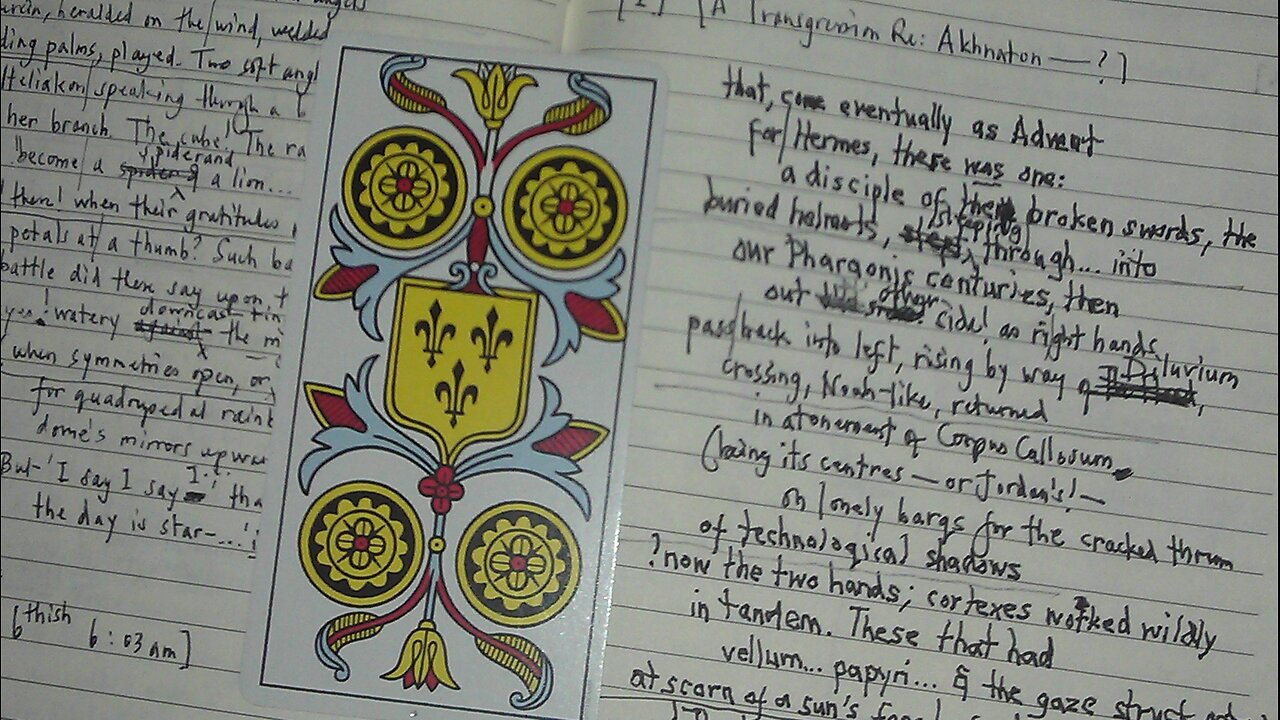 heralded on the wind, wedded
ding palms, played. Two soft angl
Heliakon/ speaking through a b
her branch. The cube! The ra
spiderand
become/ a spider & a lion...
there! when their gratitudes
petals at a thumb? Such ba
battle did then say upon t
downcast
watery against the mi
when symmetries open, or,
for quadrupedal raint
dome's mirrors upwar
But-'I say I say I tha
the day is star-...
[thish 6:03 am]
[A Transgression Re: Akhnaton —?]
that, come eventually as Advent
for/ Hermes, there was one:
a disciple of the broken swords, the
buried helmets, steeping through... into
our Pharaonic centuries, then
out other side! as right hands
pass/back into left, rising by way of Diluvium
crossing, Noah-like, returned
in atonement of Corpus Callosum
(being its centres — or Jordan's! —
on lonely bargs for the cracked thrum
of technological shadows
? now the two hands; cortexes worked wildly
in tandem. These that had
vellum... papyri... & the gaze struct
at scorn of a sun's